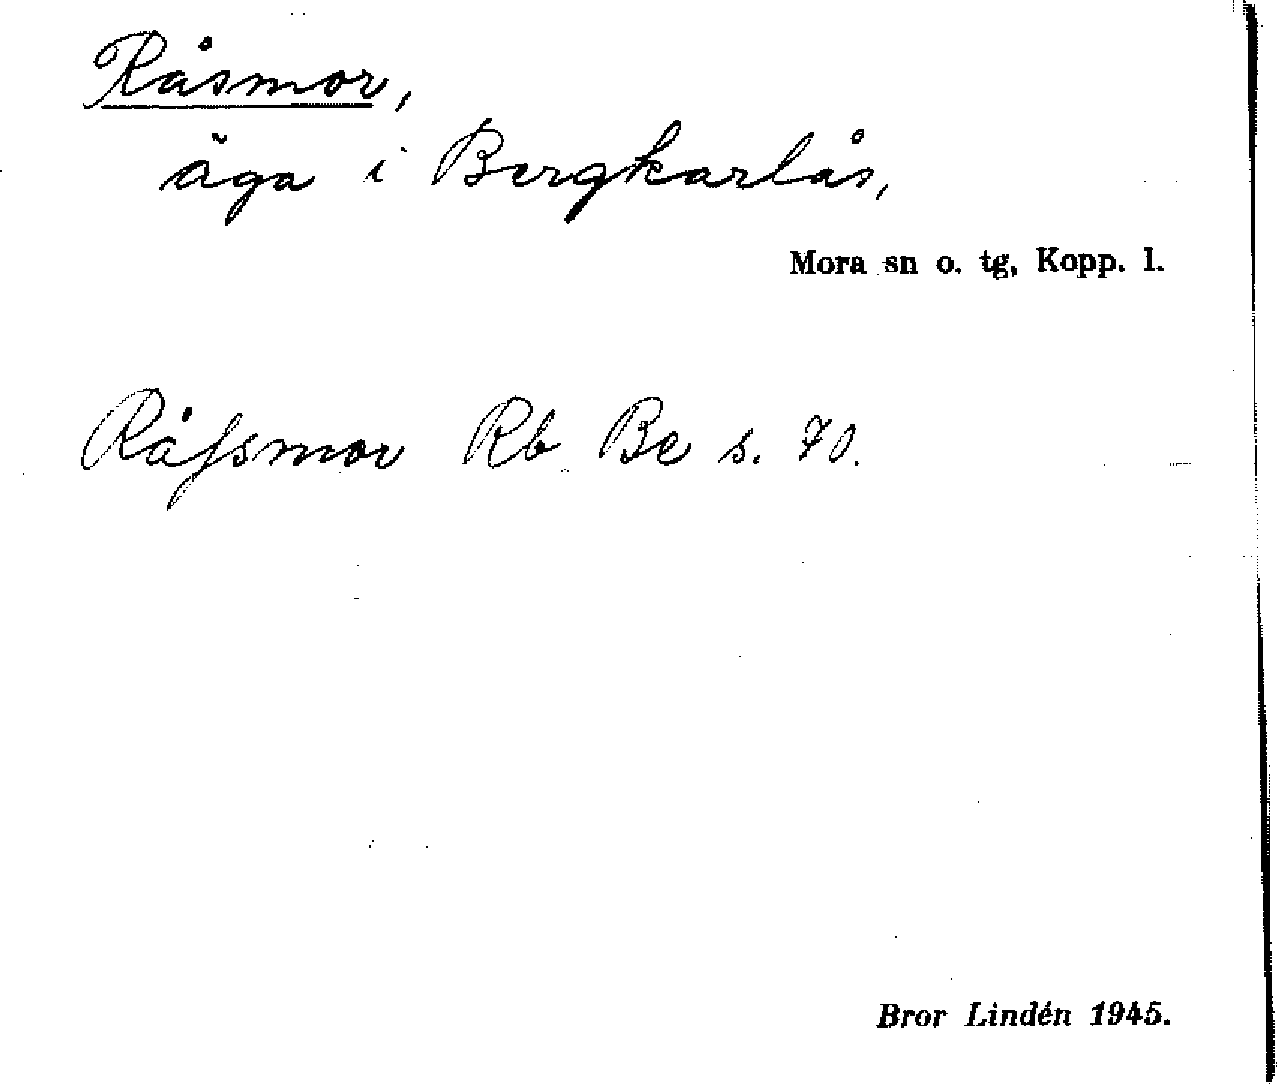 Råsmor,
äga i Bergkarlås,
Mora sn o. tg, Kopp. l.
Råſsmor Rb Be s. 70.
Bror Lindén 1945.